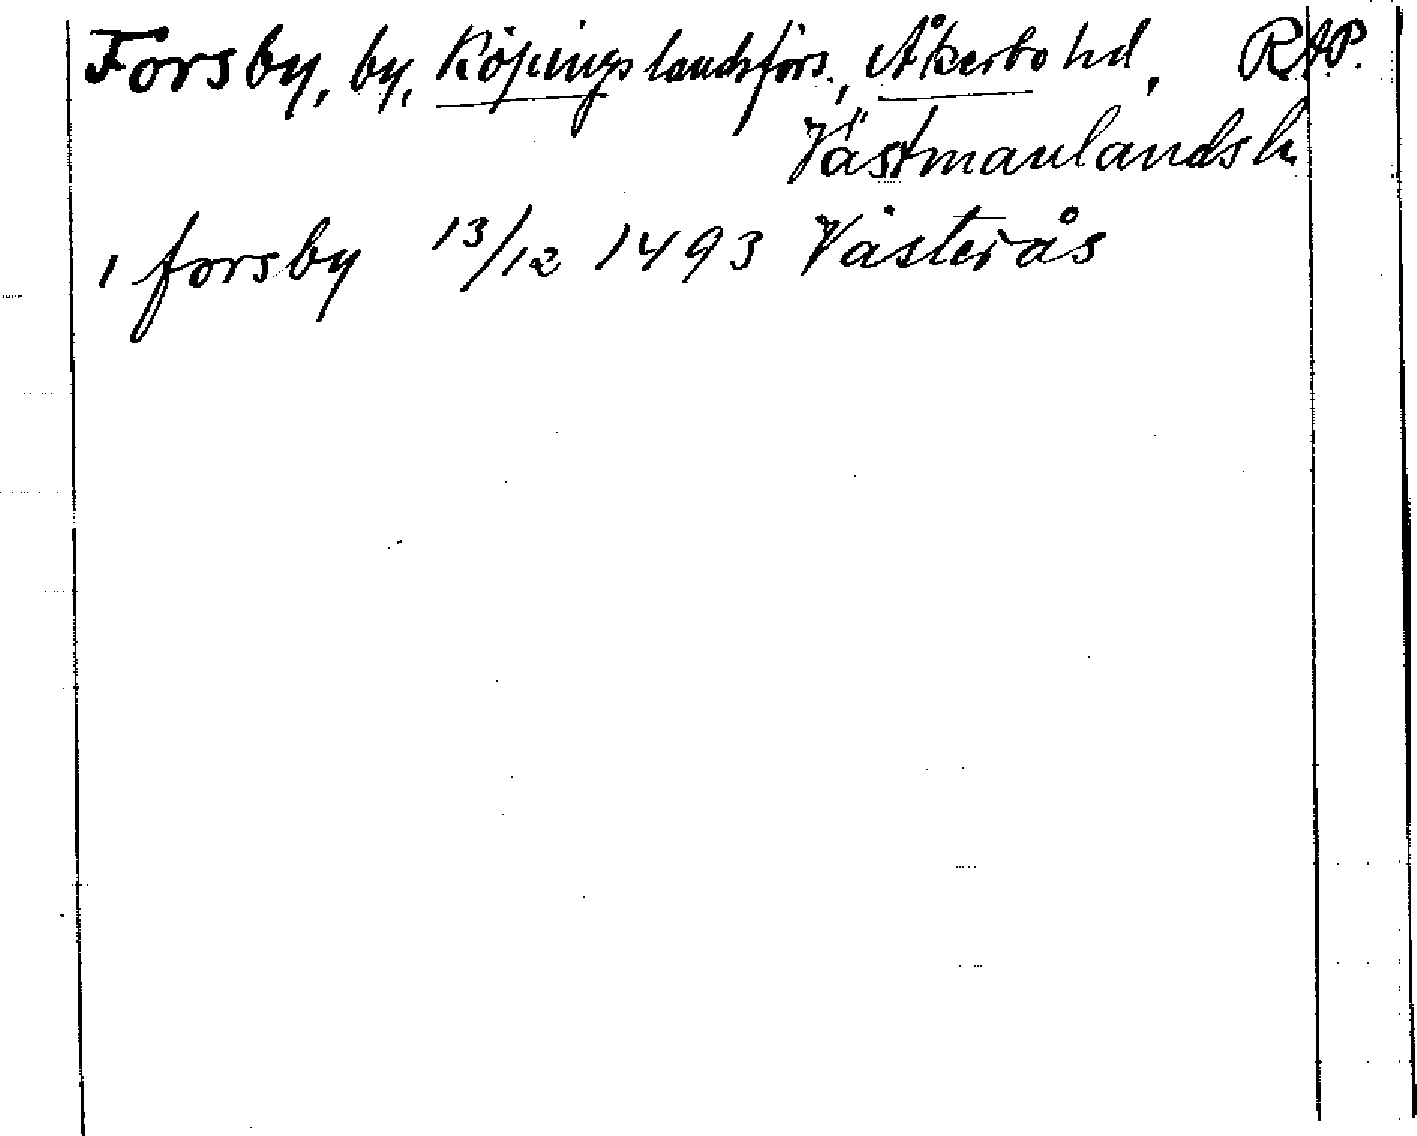 Forsby, by, Köpings landsförs., Åkerbo hd, RAP.
Västmanlands l.
i forsby 13/12 1493 Västerås